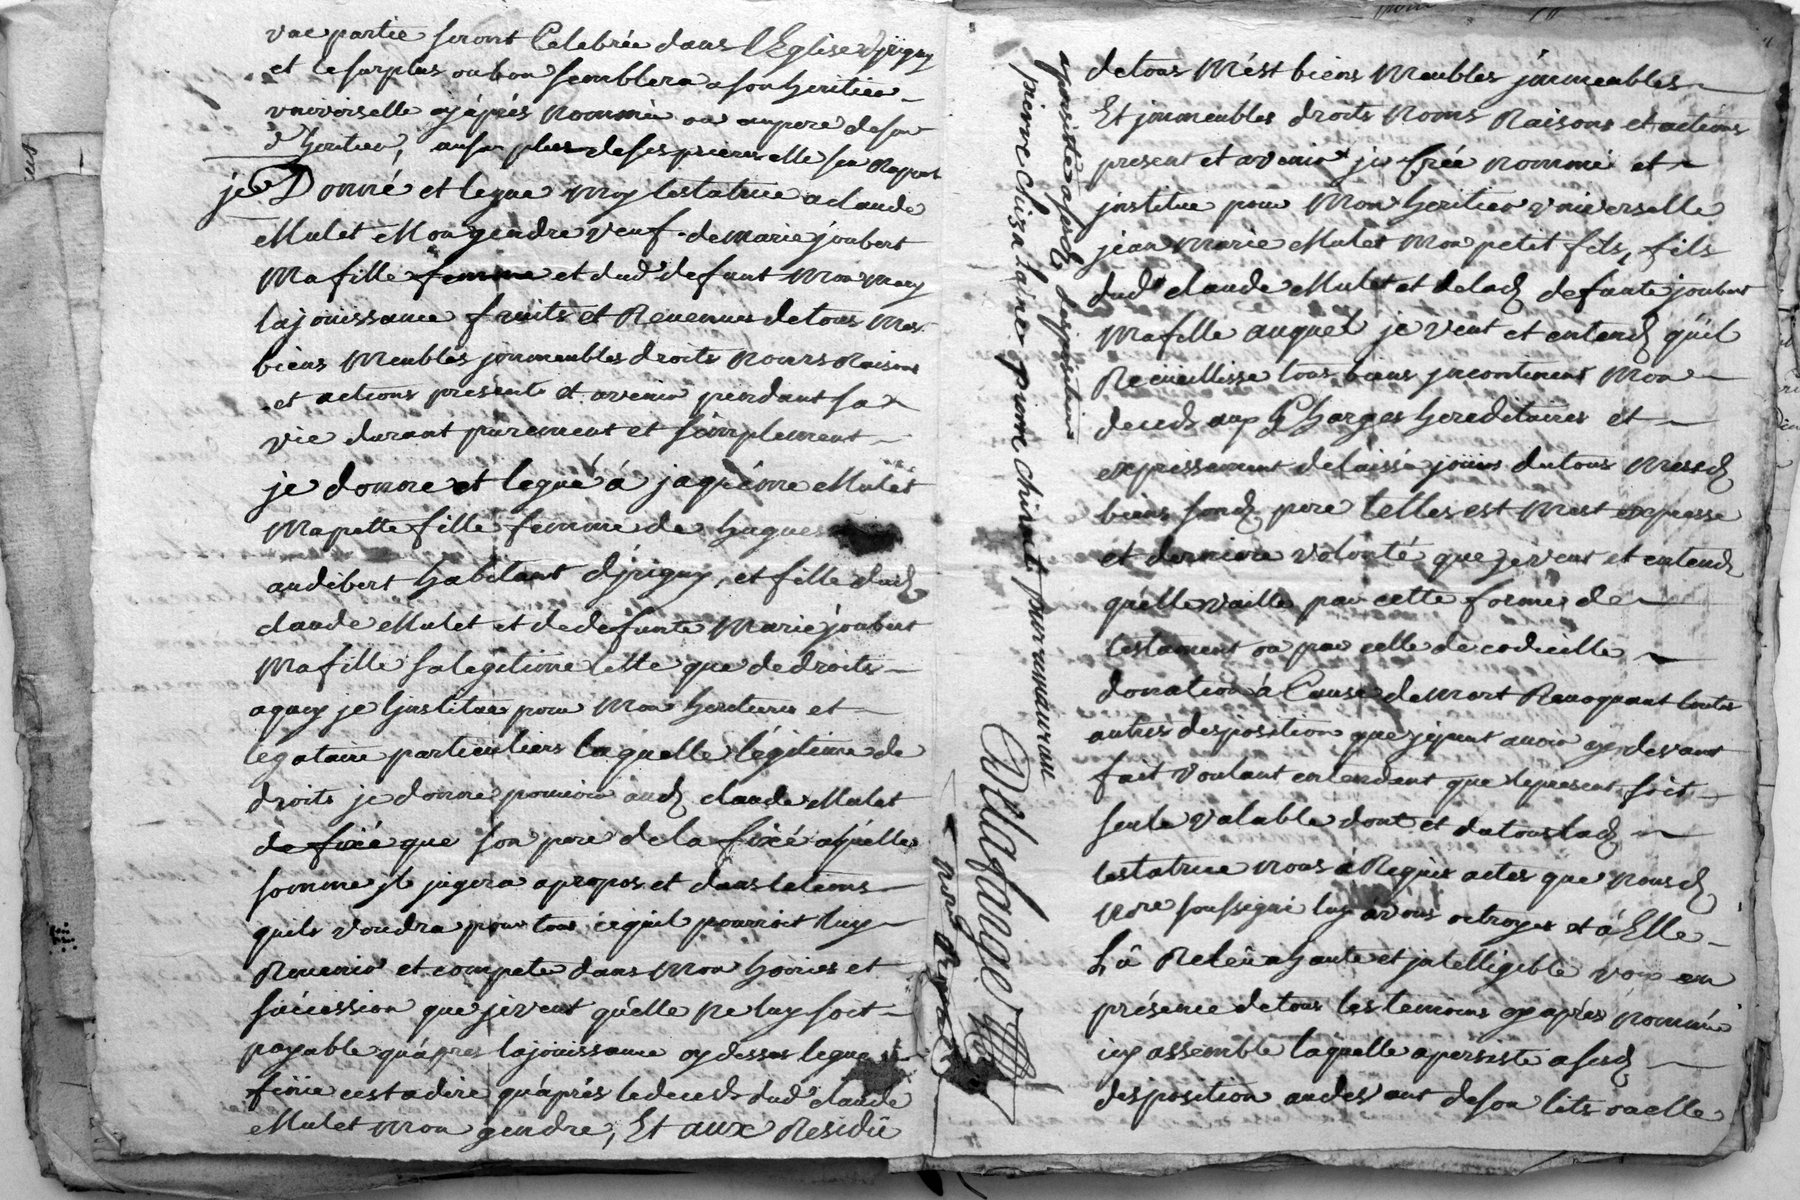 vne partie seront Celebrée dans l'Eglise d'jrigny
et le surplus ou bon semblera a son heritier
vniverselle cy après nommée ou au pere de son
d. heritier, au sr plus de ses prieres elle sen Raport
je Donné et legue moy testatrice a claude
Mulet Mon gendre veuf de marie joubert
Ma fille femme et dud. defunt mon mary
la jouissance fruits et Revenus de tous mes
biens meubles jmmeubles droits noms Raisons
et actions présents et avenir pendant sa
vie durant purement et simplement
je donne et legué á jaquême Mulet
Ma petite fille femme de hugues
audibert habitant d'jrigny, et fille dud.
claude Mulet et de defunte Marie joubert
Ma fille sa legitime telle que de droits
a quoy je l'jnstitué pour Mon heritiere et
legataire particuliers laquelle légitime de
droits je donne pouvoir aud. claude Mulet
de fixé que son pere de la fixé a quelles
somme jl jugera a propos et dans le tems
quils voudra pour tous ce quil pourroit luy
Revenir et compete dans Mon hoiries et
succession que je veut quélle ne luy soit
payable qu'après la jouissance cy dessus legué et
finie cest a dire qu'après le deceds dud. claude
Mulet mon gendre, Et aux Residû
apersiste a sesd. despositions
pierre chissalaine pierre chirat pierre mauran
Mulafange
nore Royal
de tous Mést biens Meubles jmmeubles
Et jmmeubles droits Noms Raisons et actions
present et avenir je Crée nommé et
jnstitue pour Mon heritier vniverselle
jean Marie Mulet Mon petit fils, fils
dud. claude Mulet et de lad. defunte joubert
Ma fille auquel je veut et entend. quil
Recüeillisse tous biens jncontinent Mon
deceds aux Charges hereditaires et
expressement de laissé joüir du tous mesd.
biens sond. pere telles est mest expresse
et derniere volonté que je veut et entend.
quélle vaille par cette formes de
testament ou par celle de codicille
donation á Cause de mort Revoquant toutes
autres desposition que je peut avoir cy devant
fait voulant entendant que le present soit
seule valable dont et du tous lad.
testatrice nous á Requis actes que nousd.
nore soussigné luy avons octroyés et á Elle
Lû Relêû a haute et jntelligible voix en
présence de tous les temoins cy après nommé
icy assemble laquelle a persiste a sesd.
desposition au devant de son lits ou elle